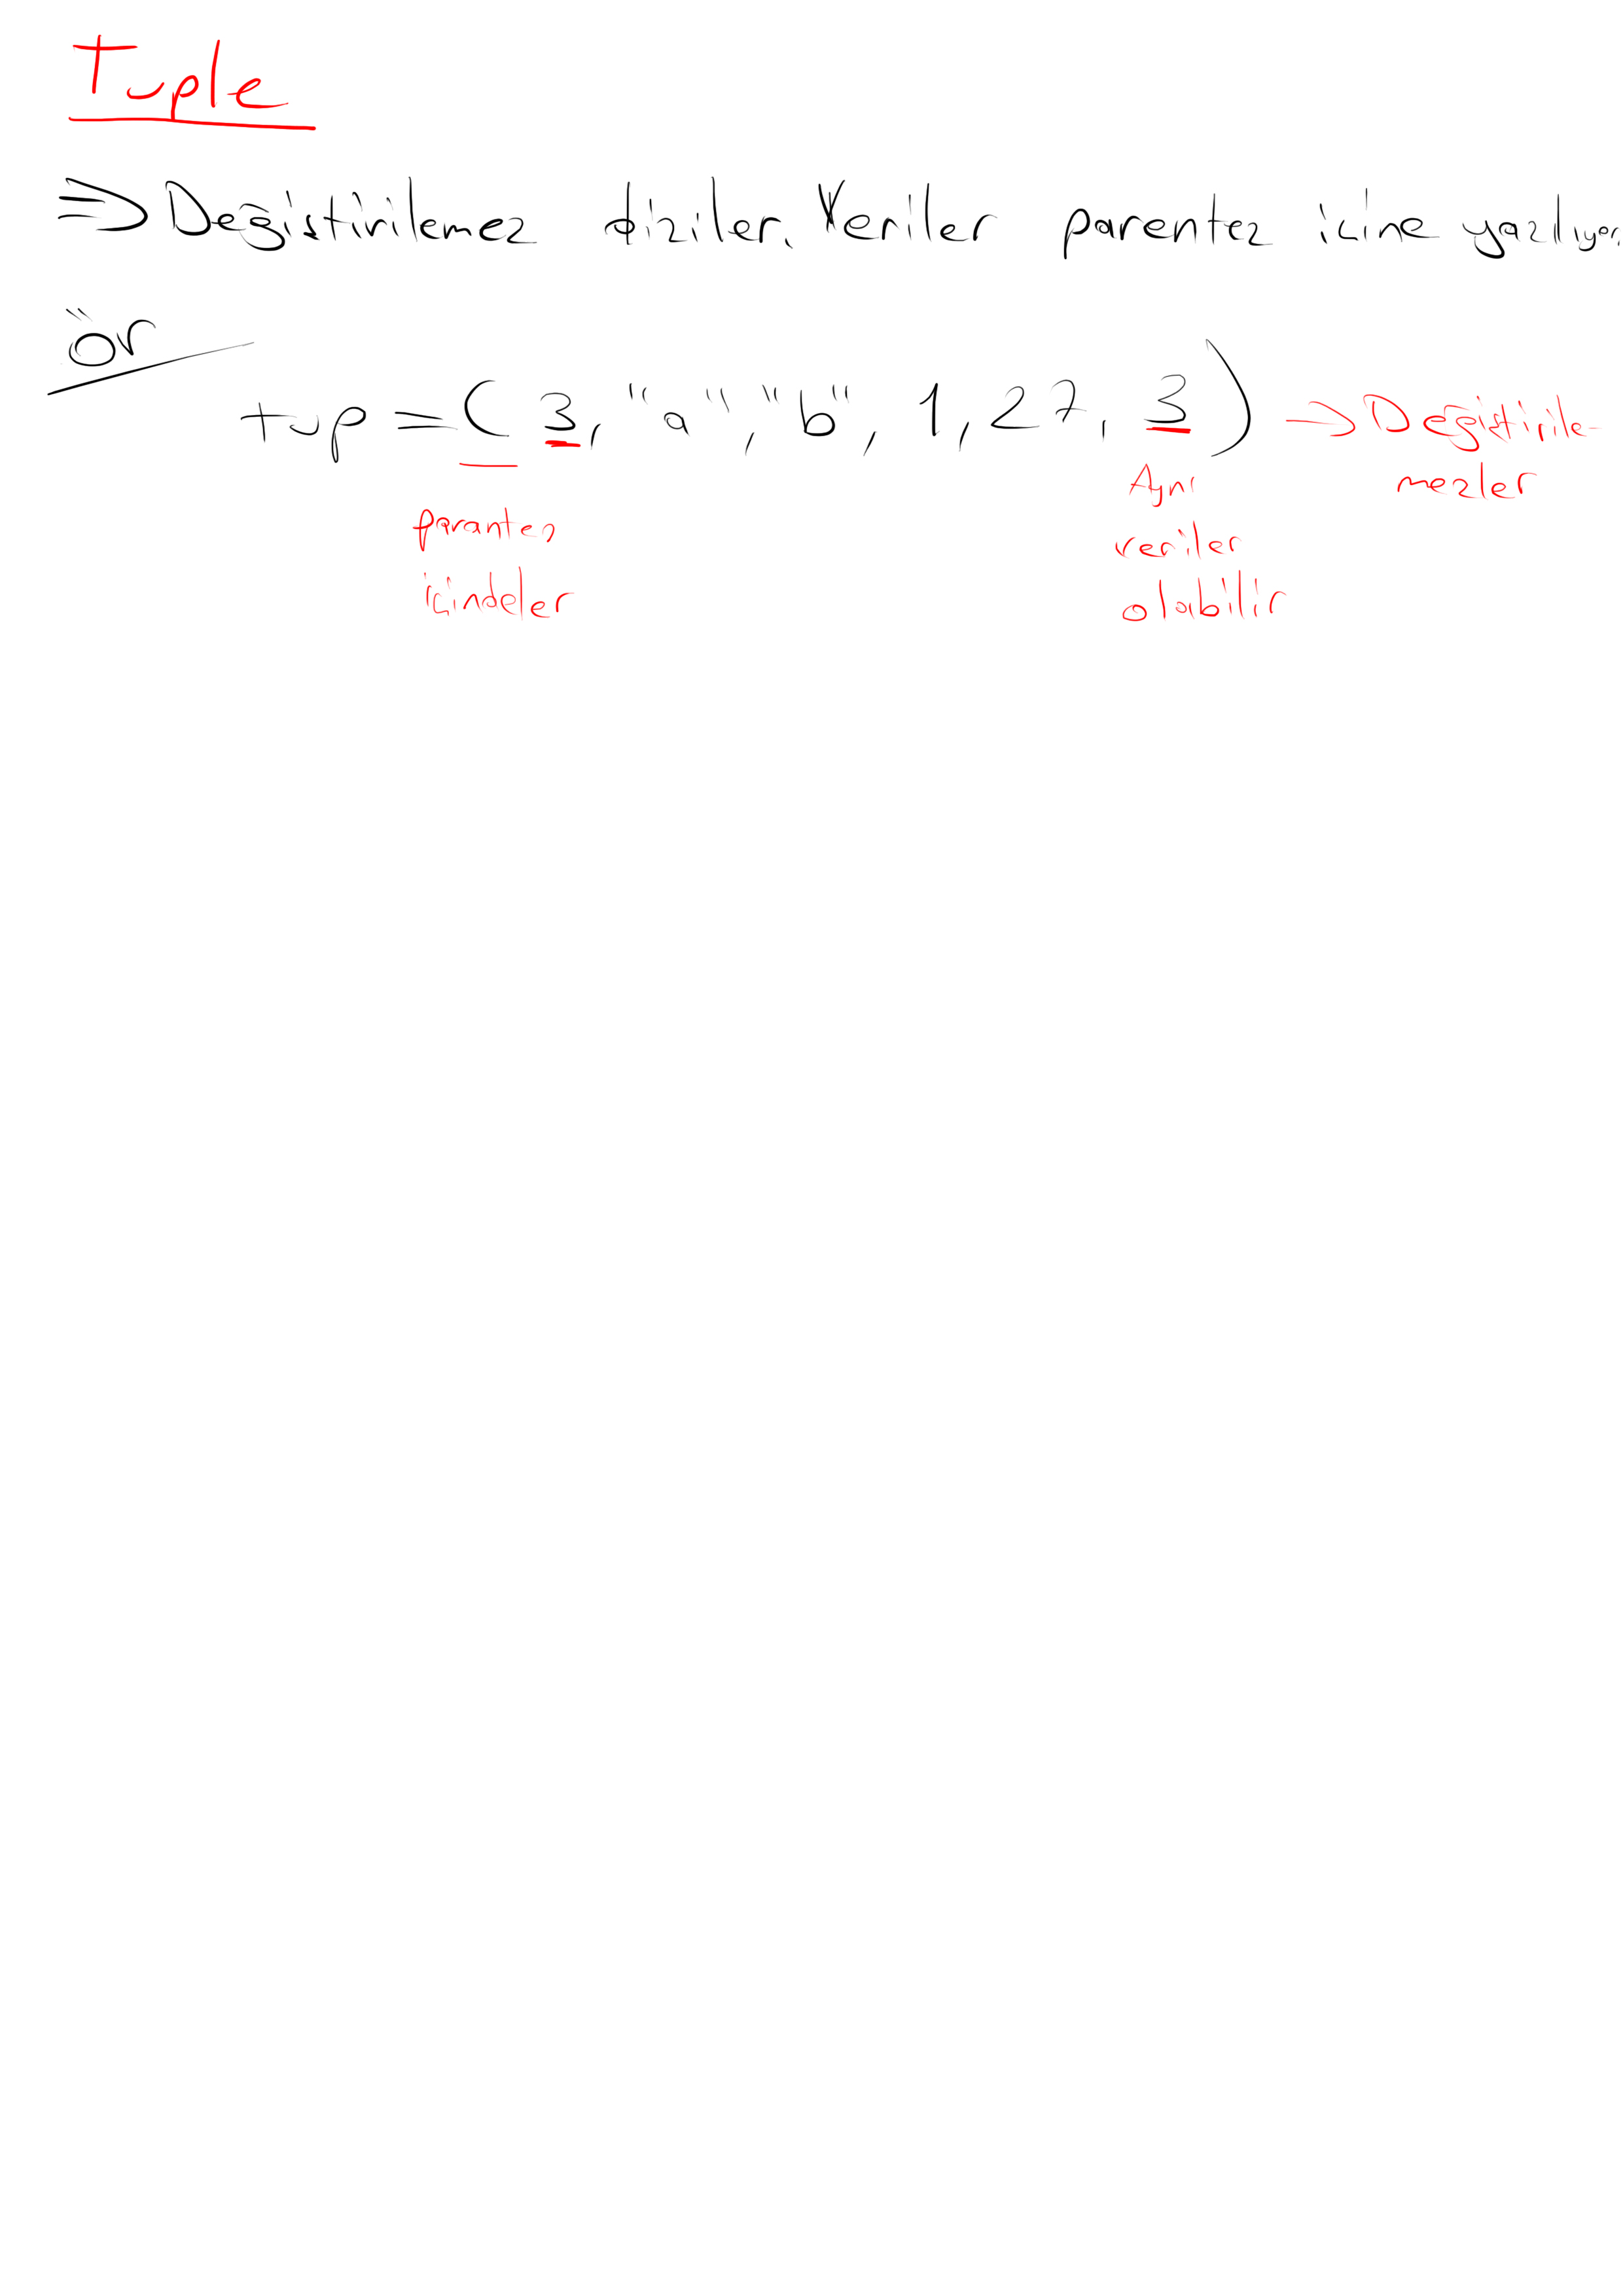 Tuple
⇒ Değiştirilemez diziler. Veriler parantez içine yazılıyor
ör
tup = ( 3, "a", "b", 1, 27, 3 ) → Değiştirile-
mezler
parantez
içindeler
Aynı
veriler
olabilir